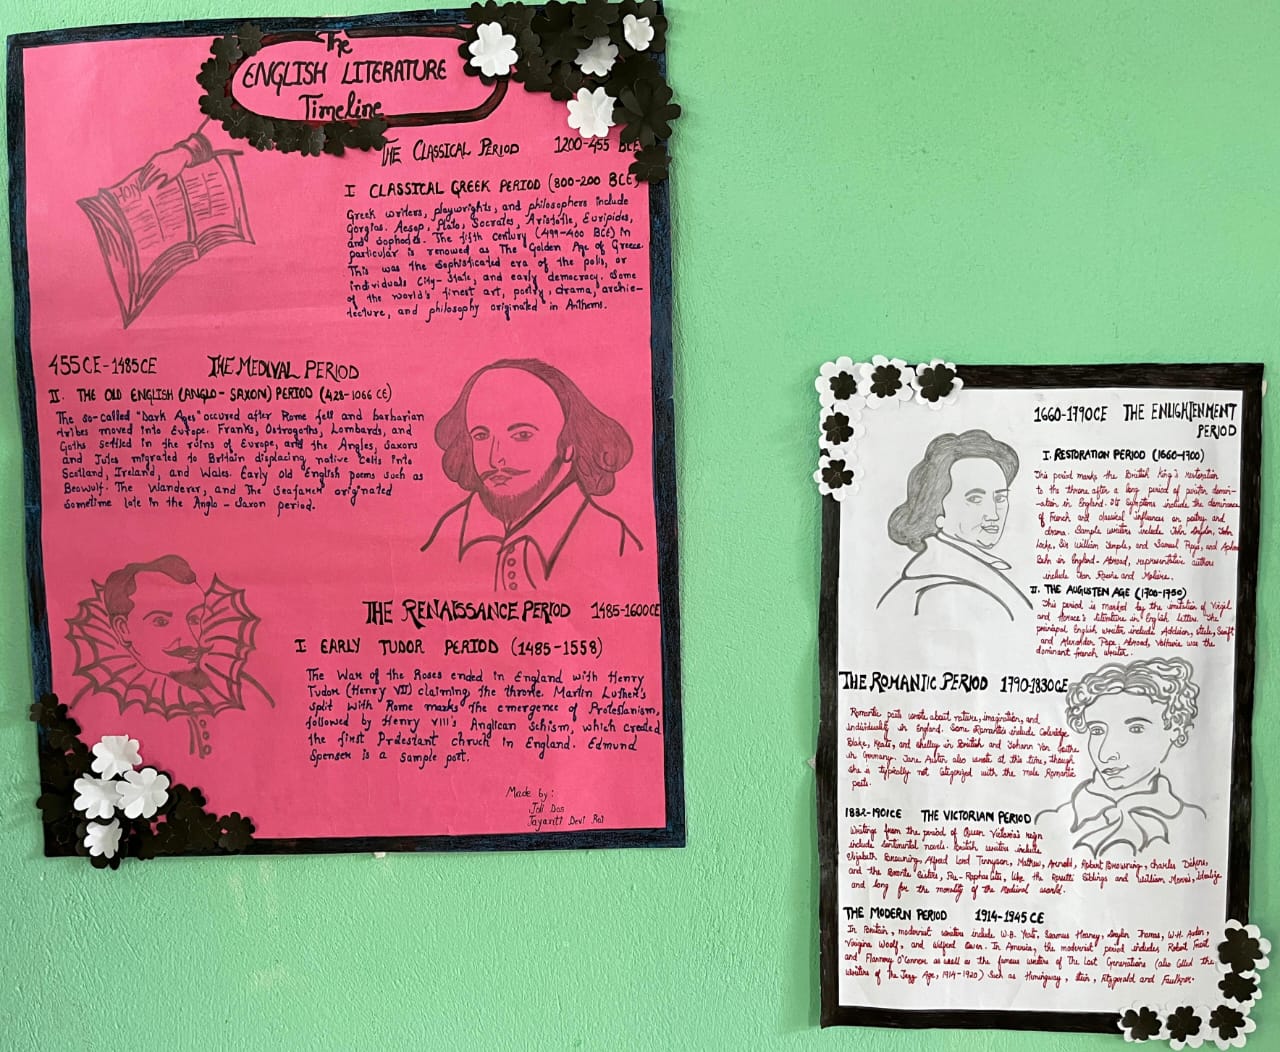 The
ENGLISH LITERATURE
Timeline
THE CLASSICAL PERIOD 1200-455 BCE
I CLASSICAL GREEK PERIOD (800-200 BCE)
Greek writers, playwrights, and philosophers include
Gorgias, Aesop, Plato, Socrates, Aristotle, Euripides,
and Sophocles. The fifth century (499-400 BCE) in
particular is renowed as The Golden Age of Greece.
This was the sophisticated era of the polis, or
individuals City-State, and early democracy. Some
of the world's finest art, poetry, drama, archie-
tecture, and philosophy originated in Anthems.
455CE-1485CE THE MEDIVAL PERIOD
II. THE OLD ENGLISH (ANGLO-SAXON) PERIOD (428-1066 CE)
The so-called "Dark Ages" occured after Rome fell and barbarian
tribes moved into Europe. Franks, Ostrogoths, Lombards, and
Goths settled in the ruins of Europe, and the Angles, Saxons
and Jutes migrated to Britain displacing native Celts into
Scotland, Ireland, and Wales. Early Old English poems such as
Beowulf. The Wanderer, and The Seafarer originated
sometime late in the Anglo-Saxon period.
THE RENAISSANCE PERIOD 1485-1600CE
I EARLY TUDOR PERIOD (1485-1558)
The War of the Roses ended in England with Henry
Tudor (Henry VII) claiming the throne. Martin Luther's
split with Rome marks the emergence of Protestanism,
followed by Henry VIII's Anglican Schism, which created
the first Prdestant chruch in England. Edmund
Spenser is a sample poet.
Made by:
Joli Das
Jayanti Devi Rai
1660-1790CE THE ENLIGHTENMENT
PERIOD
I. RESTORATION PERIOD (1660-1700)
This period marks the British King's restoration
to the throne after a long period of puritan domin-
-ation in England. Its symptoms include the dominance
of French and classical influences on poetry and
drama. Sample writers include John Dryden, John
Locke, Sir William Temple, and Samuel Pepys, and Aphra
Behn in England. Abroad, representative authors
include Jean Racine and Molière.
II. THE AUGUSTEN AGE (1700-1750)
This period is marked by the imitation of Virgil
and Horace's literature in English letters. The
principal English writer include Addison, Steele, Swift
and Alexander Pope. Abroad, Voltaire was the
dominant french writer.
THE ROMANTIC PERIOD 1790-1830CE
Romantic poets wrote about nature, imagination, and
individuality in England. Some Romantics include Coleridge
Blake, Keats, and shelley in British and Johann Von Goethe
in Germany. Jane Austen also wrote at this time, though
she is typically not catigorized with the male Romantic
poets.
1832-1901CE THE VICTORIAN PERIOD
Writings from the period of Queen Victoria's reign
include sentimental novels. British writers include
Elizabeth Browning, Alfred Lord Tennyson, Mathew, Arnold, Robert Browning, Charles Dickens,
and the Bronte Sisters, Pre-Raphaelites, like the Rosetti Siblings and William Morris, Idealize
and long for the morality of the Medival world.
THE MODERN PERIOD 1914-1945 CE
In Britain, modernist writers include W.B. Yeats, Seamus Heaney, Dylan Thomas, W.H. Auden,
Virginia Woolf, and Wilfred Owen. In America, the modernist period includes Robert Frost
and Flannery O'Connor as well as the famous writers of The Lost Generations (also Called the
Writers of The Jazz Age, 1914-1920) Such as Hemingway, Stein, Fitzgerald and Faulkner.